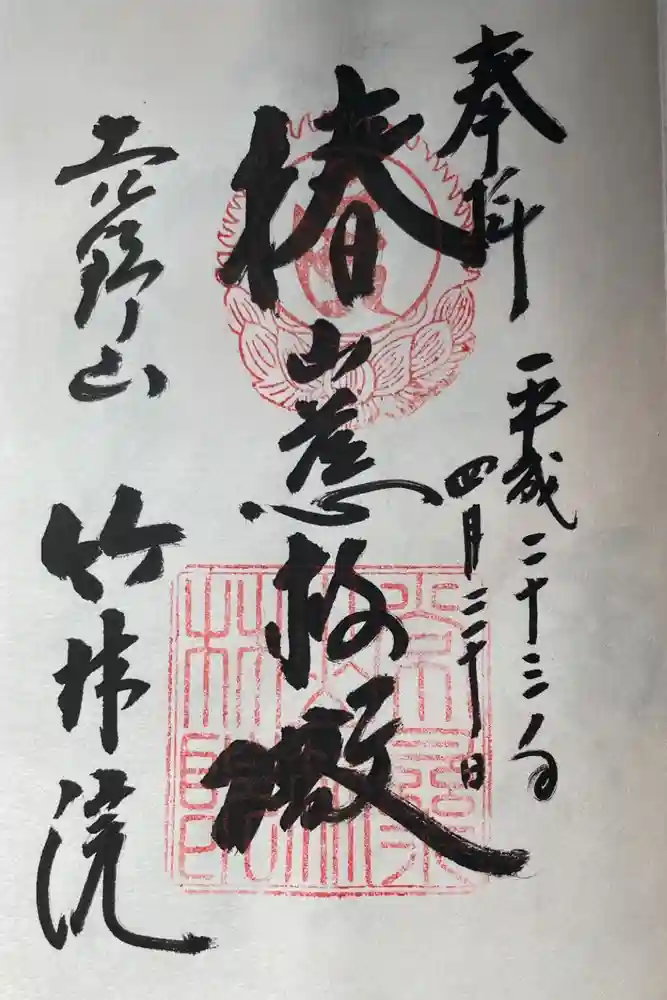 奉拝
平成二十三年
四月三十日
椿山慈救殿
吉野山 竹林院